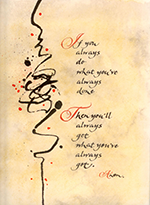 If you
always
do
what you've
always
done
Then you'll
always
get
what you've
always
got.
Anon.